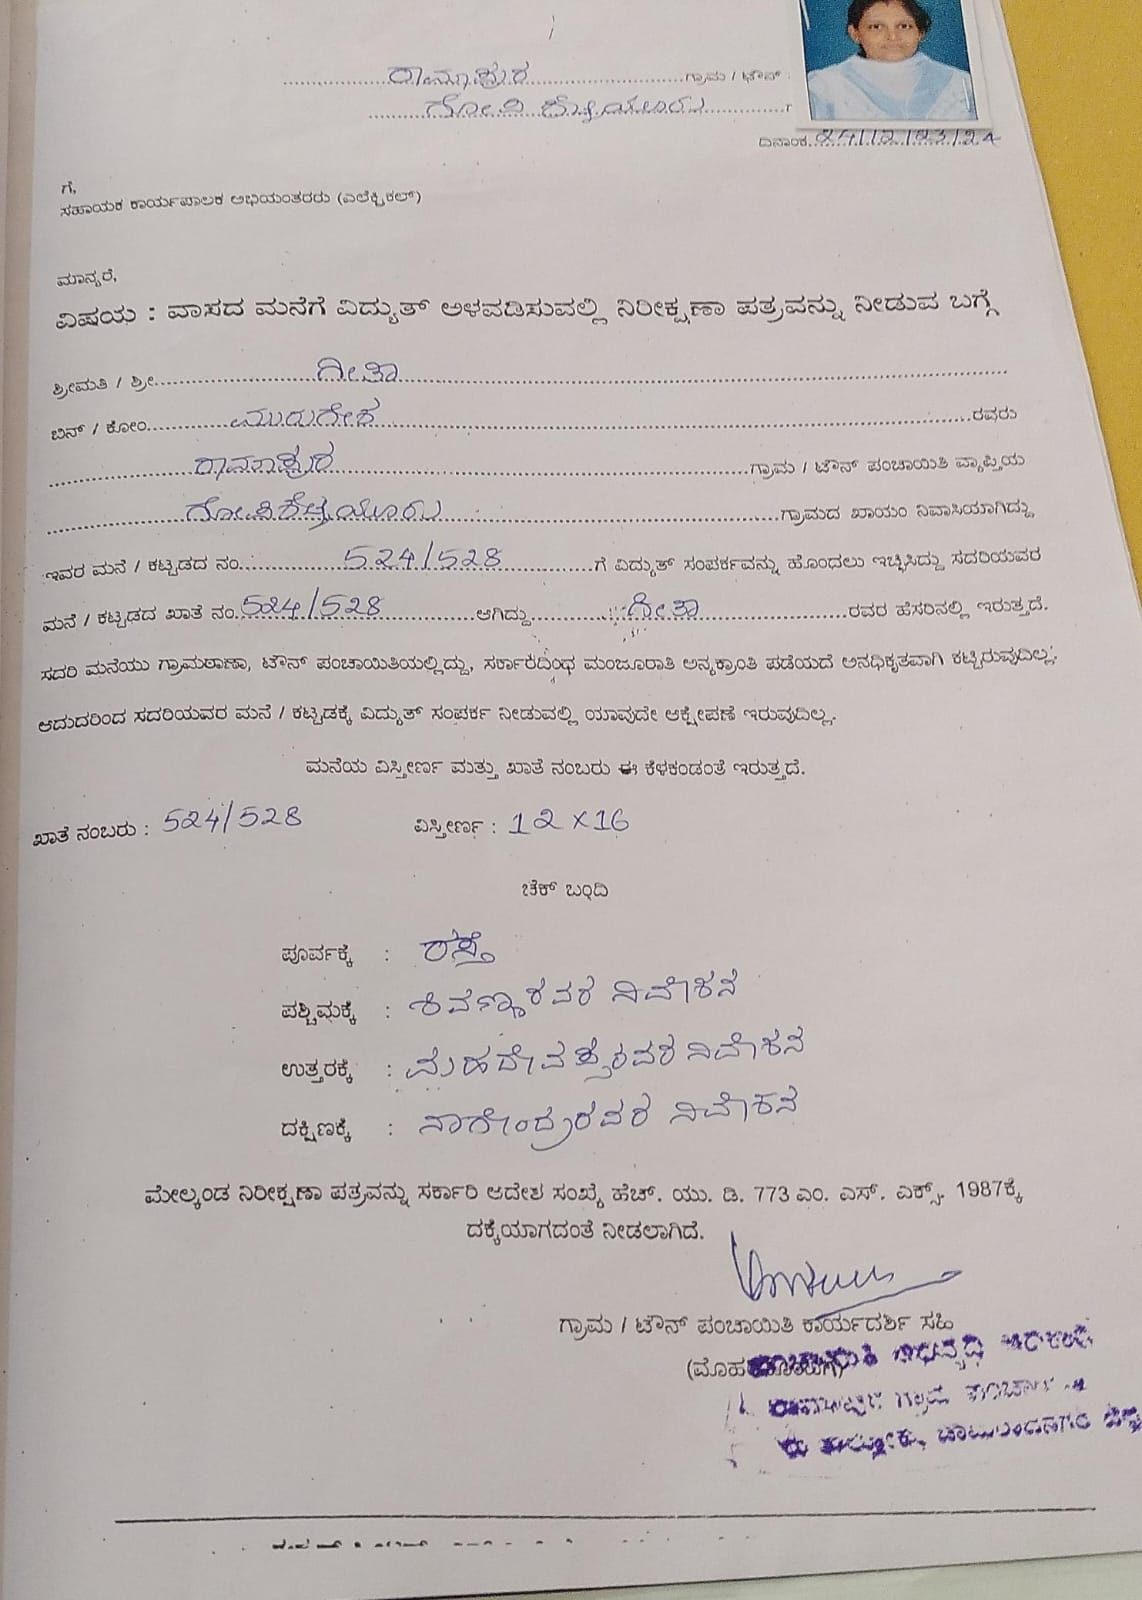 ರಾಮಾಪುರ ಗ್ರಾಮ / ಟೌನ್
ದಿನಾಂಕ 24/12/23/24
ಗೆ,
ಸಹಾಯಕ ಕಾರ್ಯಪಾಲಕ ಅಭಿಯಂತರರು (ಎಲೆಕ್ಟ್ರಿಕಲ್)
ಮಾನ್ಯರೆ,
ವಿಷಯ : ವಾಸದ ಮನೆಗೆ ವಿದ್ಯುತ್ ಅಳವಡಿಸುವಲ್ಲಿ ನಿರೀಕ್ಷಣಾ ಪತ್ರವನ್ನು ನೀಡುವ ಬಗ್ಗೆ
ಶ್ರೀಮತಿ / ಶ್ರೀ ಗೀತಾ
ಬಿನ್ / ಕೋಂ ಮುರುಗೇಶ ರವರು
ರಾಮಾಪುರ ಗ್ರಾಮ / ಟೌನ್ ಪಂಚಾಯಿತಿ ವ್ಯಾಪ್ತಿಯ
ಗ್ರಾಮದ ಖಾಯಂ ನಿವಾಸಿಯಾಗಿದ್ದು,
ಇವರ ಮನೆ / ಕಟ್ಟಡದ ನಂ. 524/528 ಗೆ ವಿದ್ಯುತ್ ಸಂಪರ್ಕವನ್ನು ಹೊಂದಲು ಇಚ್ಛಿಸಿದ್ದು ಸದರಿಯವರ
ಮನೆ / ಕಟ್ಟಡದ ಖಾತೆ ನಂ. 524/528 ಆಗಿದ್ದು ಗೀತಾ ರವರ ಹೆಸರಿನಲ್ಲಿ ಇರುತ್ತದೆ.
ಸದರಿ ಮನೆಯು ಗ್ರಾಮಠಾಣಾ, ಟೌನ್ ಪಂಚಾಯಿತಿಯಲ್ಲಿದ್ದು, ಸರ್ಕಾರದಿಂಧ ಮಂಜೂರಾತಿ ಅನ್ಯಕ್ರಾಂತಿ ಪಡೆಯದೆ ಅನಧಿಕೃತವಾಗಿ ಕಟ್ಟಿರುವುದಿಲ್ಲ.
ಆದುದರಿಂದ ಸದರಿಯವರ ಮನೆ / ಕಟ್ಟಡಕ್ಕೆ ವಿದ್ಯುತ್ ಸಂಪರ್ಕ ನೀಡುವಲ್ಲಿ ಯಾವುದೇ ಆಕ್ಷೇಪಣೆ ಇರುವುದಿಲ್ಲ.
ಮನೆಯ ವಿಸ್ತೀರ್ಣ ಮತ್ತು ಖಾತೆ ನಂಬರು ಈ ಕೆಳಕಂಡಂತೆ ಇರುತ್ತದೆ.
ಖಾತೆ ನಂಬರು : 524/528 ವಿಸ್ತೀರ್ಣ : 12 x 16
ಚೆಕ್ ಬಂದಿ
ಪೂರ್ವಕ್ಕೆ : ರಸ್ತೆ
ಪಶ್ಚಿಮಕ್ಕೆ : ನಿವೇಶನ
ಉತ್ತರಕ್ಕೆ : ನಿವೇಶನ
ದಕ್ಷಿಣಕ್ಕೆ : ನಾಗೇಂದ್ರರವರ ನಿವೇಶನ
ಮೇಲ್ಕಂಡ ನಿರೀಕ್ಷಣಾ ಪತ್ರವನ್ನು ಸರ್ಕಾರಿ ಆದೇಶ ಸಂಖ್ಯೆ ಹೆಚ್. ಯು. ಡಿ. 773 ಎಂ. ಎಸ್. ಎಕ್ಸ್. 1987ಕ್ಕೆ
ದಕ್ಕೆಯಾಗದಂತೆ ನೀಡಲಾಗಿದೆ.
ಗ್ರಾಮ / ಟೌನ್ ಪಂಚಾಯಿತಿ ಕಾರ್ಯದರ್ಶಿ ಸಹಿ